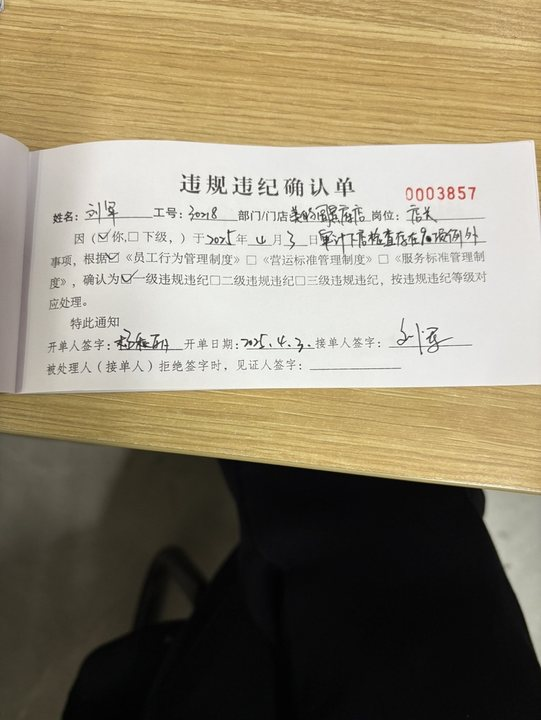 违规违纪确认单
0003857
姓名：刘军 工号：30218 部门/门店 美的国宾府店 岗位：店长
因（☑你，□下级，）于2025年4月3日审计下店检查存在90项例外
事项，根据☑《员工行为管理制度》□《营运标准管理制度》□《服务标准管理制
度》，确认为☑一级违规违纪□二级违规违纪□三级违规违纪，按违规违纪等级对
应处理。
特此通知
开单人签字： 开单日期：2025.4.3. 接单人签字：刘军
被处理人（接单人）拒绝签字时，见证人签字：